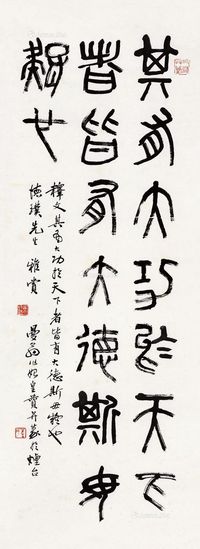 其有大功於天下
者皆有大德斯毋
疑也
釋文其有大功於天下者皆有大德斯毋疑也
德璞先生 雅賞
曼翁作始皇贊并篆於煙台